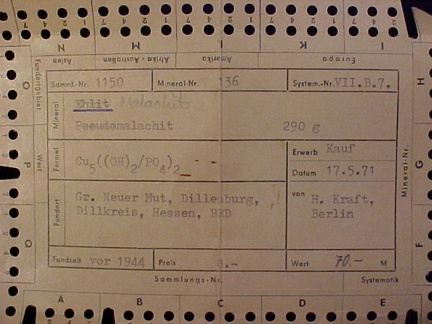 N M L K I
Asien Afrika Australien Amerika Europa
Samml.-Nr. 1150 Mineral-Nr. 136 System.-Nr. VII.B.7.
Mineral Ehlit Malachit
Pseudomalachit 290 g
Formel Cu5((OH)2/PO4)2
Erwerb Kauf
Datum 17.5.71
Fundort Gr. Neuer Mut, Dillenburg,
Dillkreis, Hessen, BRD
von H. Kraft,
Berlin
Fundzeit vor 1944 Preis .- Wert 70.- M
Sammlungs-Nr. Systematik
A B C D E
Fundortgebiet
Wert
O
P
Q
Mineral-Nr.
H
G
F